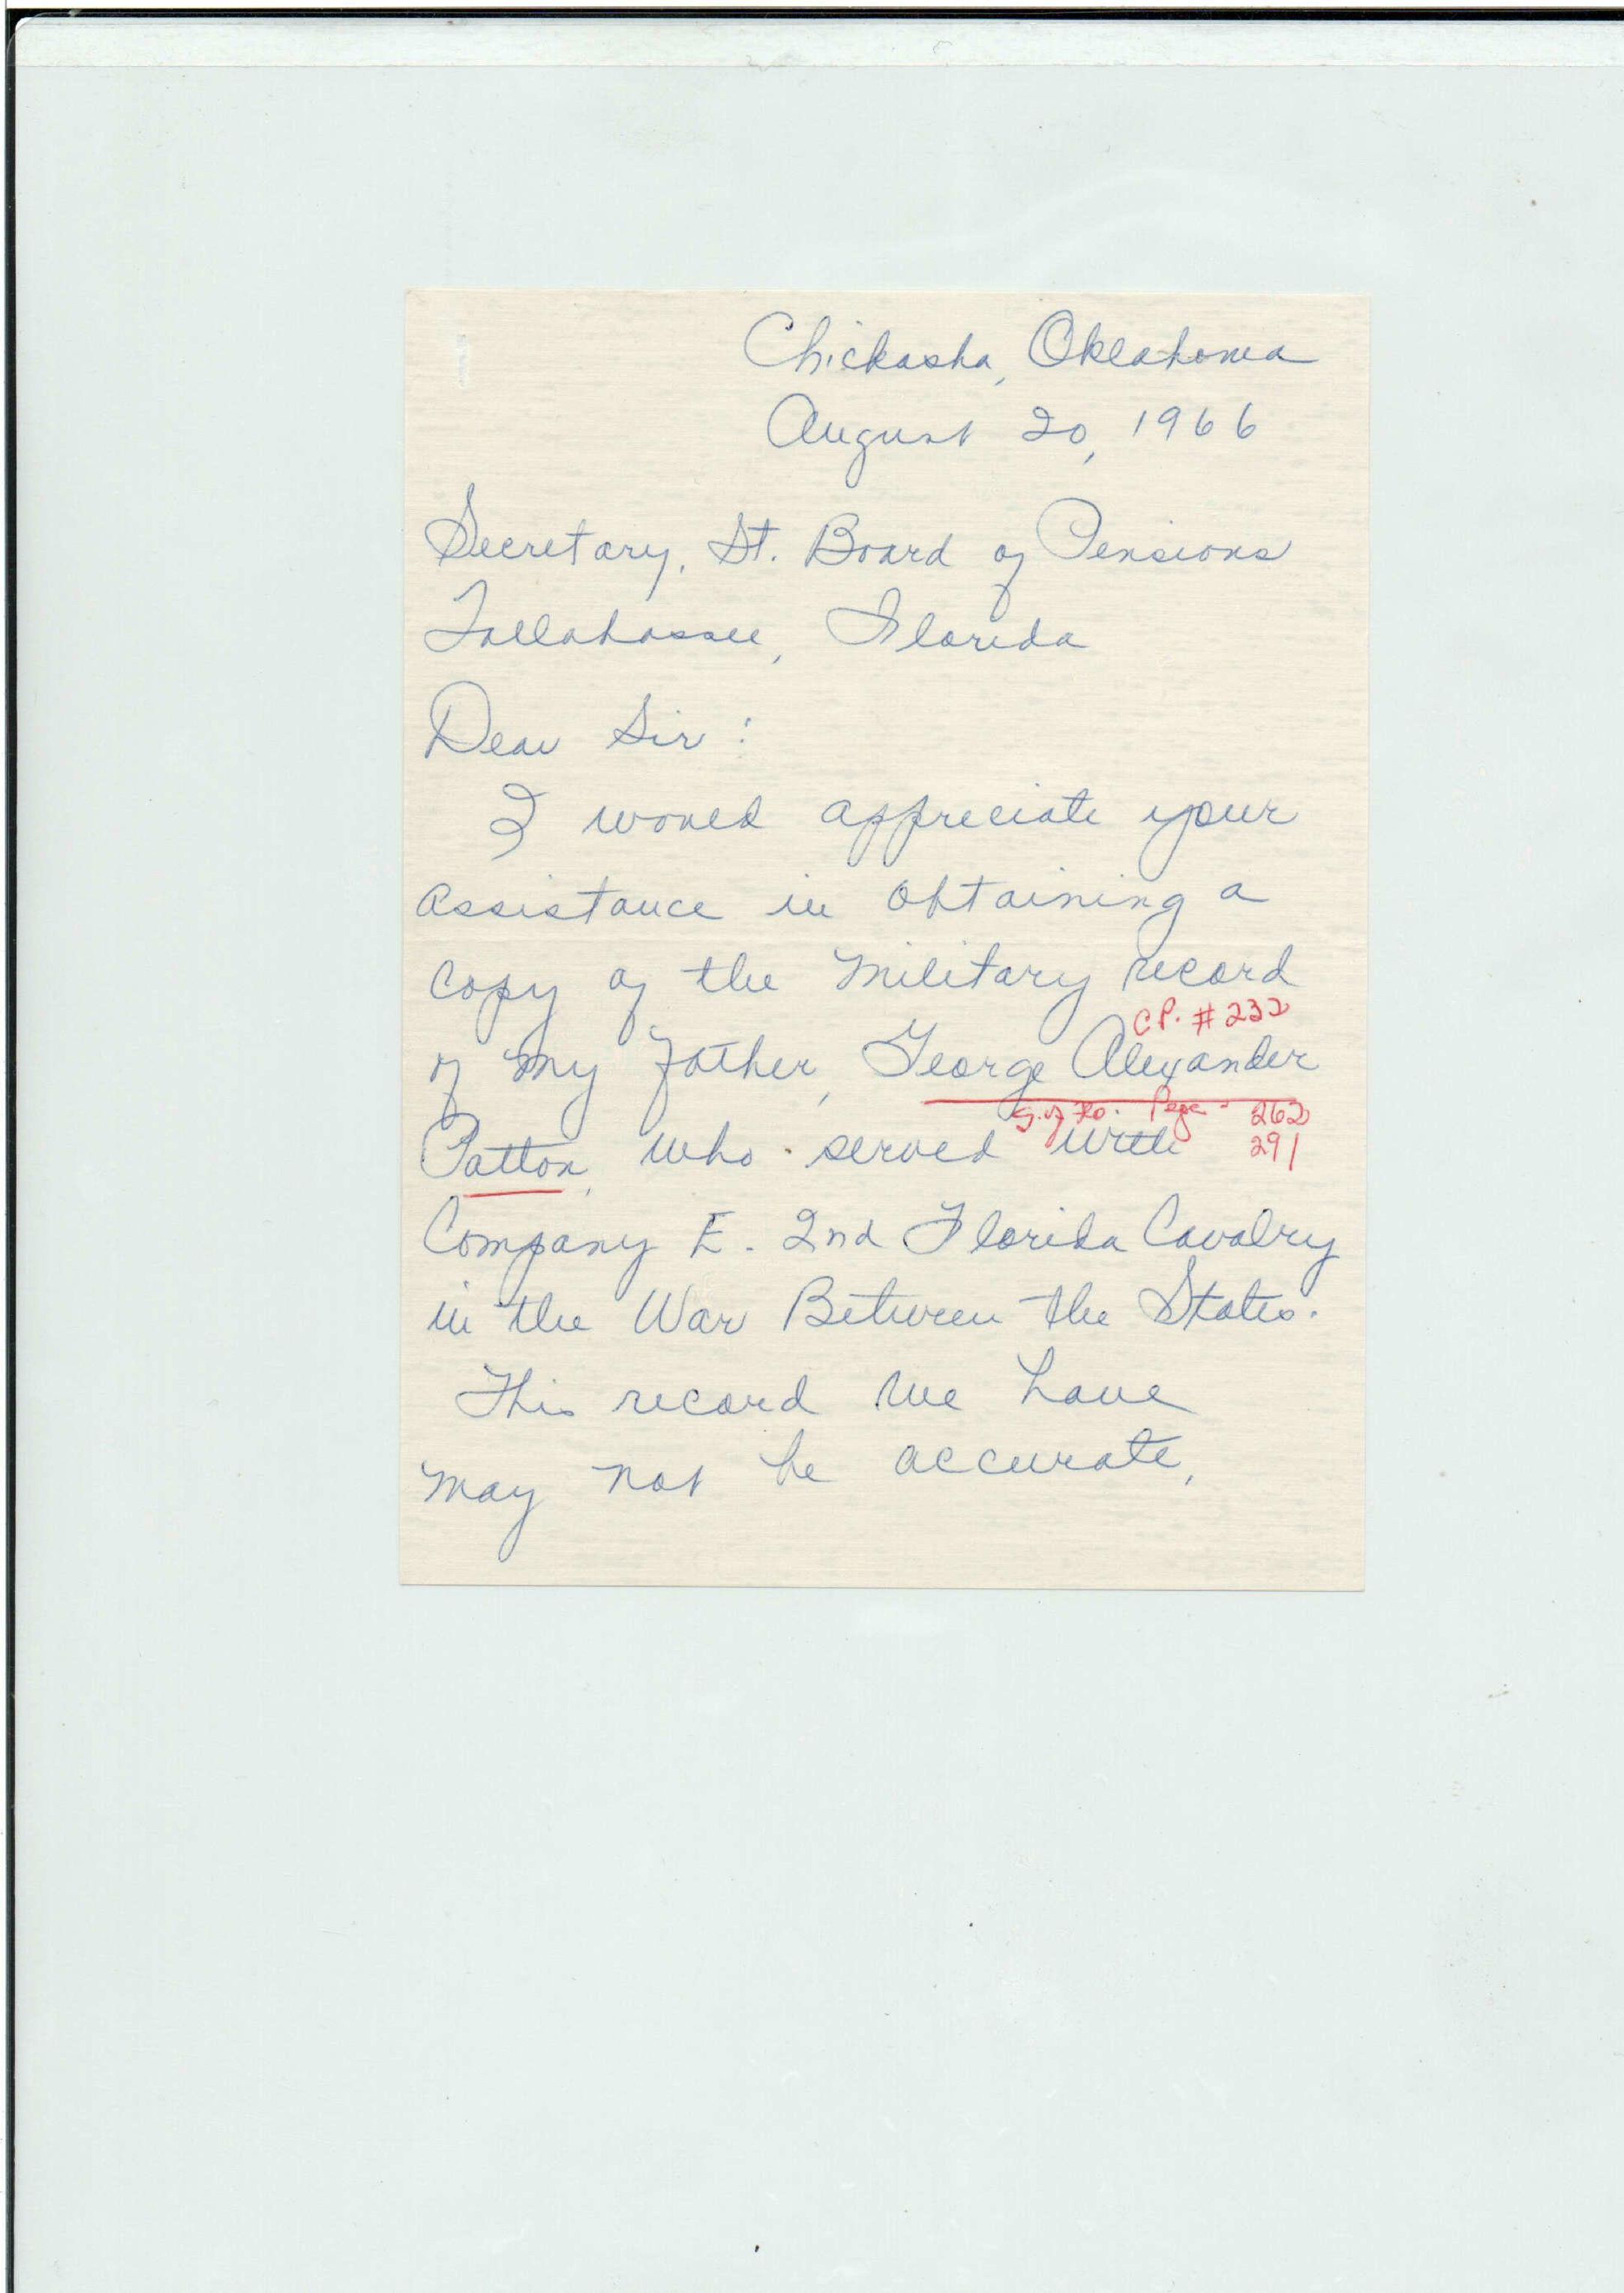 Chickasha, Oklahoma
August 20, 1966
Secretary, St. Board of Pensions
Tallahassee, Florida
Dear Sir:
I would appreciate your
assistance in obtaining a
copy of the military record
C.P. # 232
of my father, George Alexander
S. of Flo. Page - 262
Patton, who served with 291
Company E. 2nd Florida Cavalry
in the War Between the States.
This record we have
may not be accurate,